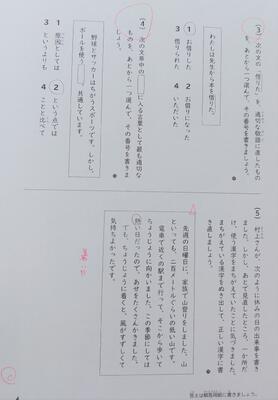 (3) 次の文の「借りた」を、適切な敬語に直したもの
を、あとから一つ選んで、その番号を書きましょう。
わたしは先生から本を借りた。
1 お借りした 2 お借りになった
3 借りられた
(4) 次の文章中の に入る言葉として最も適切な
ものを、あとから一つ選んで、その番号を書きま
しょう。
野球とサッカーはちがうスポーツです。しかし、
ボールを使う 、共通しています。
1 原因としては 2 という点では
3 というよりも 4 ことと比べて
(5) 村上さんが、次のように休みの日の出来事を書き
ました。しかし、あとで見直したところ、一か所だ
け、使う漢字をまちがえていたことに気づきました。
まちがえている漢字をぬき出して、正しい漢字に書
き直しましょう。
先週の日曜日に、家族で山登りをしました。山
といっても、二百メートルぐらいの低い山です。
電車で近くの駅まで行って、そこから歩いて
ちょうじょうに向かいました。この季節にしては
熱い日だったので、あせをたくさんかきました。
でも、ちょうじょうに着くと、風がすずしくて
気持ちよかったです。
答えは解答用紙に書きましょう。